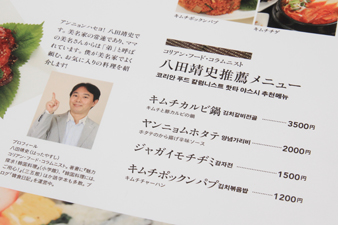 キムチポックンパブ
キムチチゲ
アンニョンハセヨ！八田靖史で
す。美名家の常連であり、ママ
の美名さんからは「弟」と呼ば
れています。僕が美名家でよく
頼む、お気に入りの料理を紹
介します！
プロフィール
八田靖史（はったやすし）
コリアン・フード・コラムニスト。
コリアン・フード・コラムニスト
八田靖史推薦メニュー
코리안 푸드 칼럼니스트 핫타 야스시 추천메뉴
キムチカルビ鍋 김치갈비전골 3500円
キムチと豚カルビの鍋
ヤンニョムホタテ 양념가리비 2000円
ホタテのから揚げ辛味ソース
ジャガイモチヂミ 감자전 1500円
キムチポックンパブ 김치볶음밥 1200円
キムチチャーハン